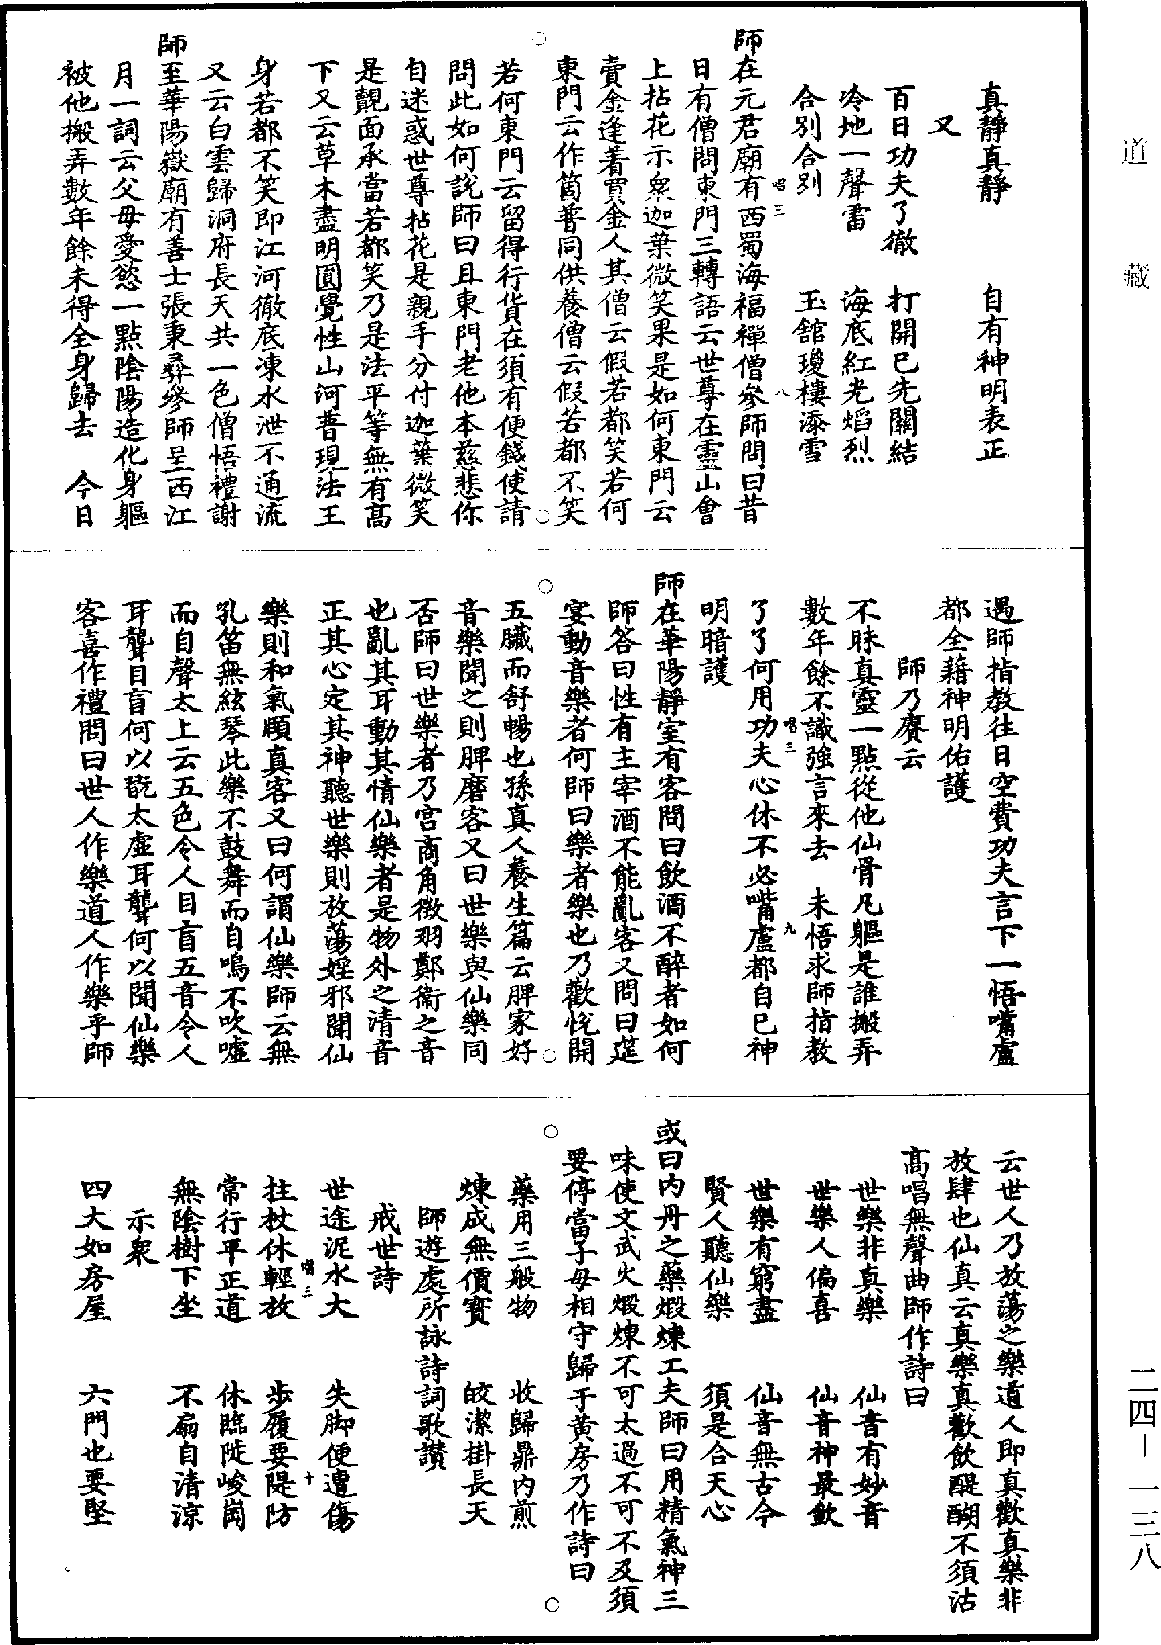 道藏
真靜真靜　自有神明表正
又
百日功夫了徹　打開巳先關結
冷地一聲雷　海底紅光焰烈
合別合別　玉舘瓊樓漆雪
師在元君廟有西蜀海福禪僧參師問曰昔
日有僧問東門三轉語云世尊在靈山會
上拈花示衆迦葉微笑果是如何東門云
賣金逢着買金人其僧云假若都笑若何
東門云作箇普同供養僧云假若都不笑
若何東門云留得行貨在須有便錢使請
問此如何說師曰且東門老他本慈悲你
自迷惑世尊拈花是親手分付迦葉微笑
是覿面承當若都笑乃是法平等無有高
下又云草木盡明圓覺性山河普現法王
身若都不笑即江河徹底凍水泄不通流
又云白雲歸洞府長天共一色僧悟禮謝
師至華陽嶽廟有善士張秉彝參師呈西江
月一詞云父母愛慾一點陰陽造化身軀
被他搬弄數年餘未得全身歸去　今日
唱三　八
遇師指教往日空費功夫言下一悟嘴盧
都全藉神明佑護
師乃賡云
不昧真靈一點從他仙骨凡軀是誰搬弄
數年餘不識強言來去　未悟求師指教
了了何用功夫心休不必嘴盧都自巳神
明暗護
師在華陽靜室有客問曰飲酒不醉者如何
師答曰性有主宰酒不能亂客又問曰筵
宴動音樂者何師曰樂者樂也乃歡悅開
五臟而舒暢也孫真人養生篇云脾家好
音樂聞之則脾磨客又曰世樂與仙樂同
否師曰世樂者乃宫商角徵羽鄭衞之音
也亂其耳動其情仙樂者是物外之清音
正其心定其神聽世樂則放蕩婬邪聞仙
樂則和氣頤真客又曰何謂仙樂師云無
孔笛無絃琴此樂不鼓舞而自鳴不吹噓
而自聲太上云五色令人目盲五音令人
耳聾目盲何以翫太虛耳聾何以聞仙樂
客喜作禮問曰世人作樂道人作樂乎師
唱三　九
云世人乃放蕩之樂道人即真歡真樂非
放肆也仙真云真樂真歡飲醍醐不須沽
高唱無聲曲師作詩曰
世樂非真樂　仙音有妙音
世樂人偏喜　仙音神最欽
世樂有窮盡　仙音無古今
賢人聽仙樂　須是合天心
或曰內丹之藥煅煉工夫師曰用精氣神三
味使文武火煅煉不可太過不可不及須
要停當子母相守歸于黄房乃作詩曰
藥用三般物　收歸鼎内煎
煉成無價寶　皎潔掛長天
師遊處所詠詩詞歌讚
戒世詩
世途泥水大　失脚便遭傷
拄杖休輕放　步履要隄防
常行平正道　休臨陡峻崗
無陰樹下坐　不扇自清涼
示衆
四大如房屋　六門也要堅
唱三　十
二四—一三八